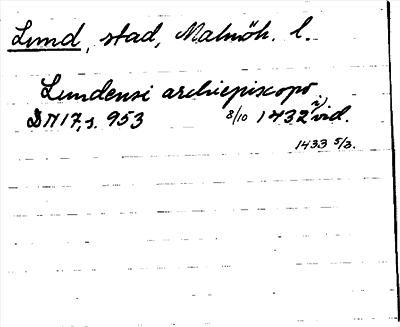 Lund, stad, Malmöh. l.
Lundensi archiepiscopo
DN 17, s. 953 8/10 1432 vid.
1433 5/3.